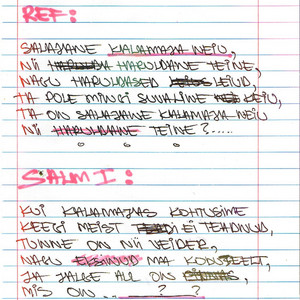 REF:
SALAJANE KALAMAJA NEIU,
NII HARULDANE TEINE,
NAGU HARULDASED LEIUD,
TA POLE MINGI SUVALINE NEIU,
TA ON SALAJANE KALAMAJA NEIU
NII HARULDANE TEINE?.....
SALM I:
KUI KALAMAJAS KOHTUSIME
KEEGI MEIST EI TEADNUD,
TUNNE ON NII VEIDER,
NAGU EKSINUD MA KODUTEELT,
JA JALGE ALL ON
MIS ON ... ? ?